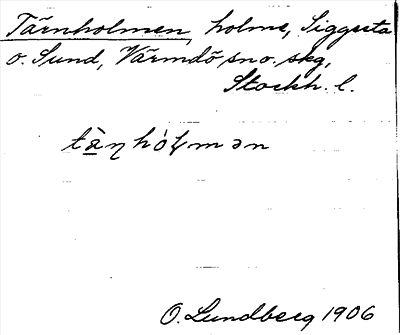 Tärnholmen, holme, Siggesta
o. Sund, Värmdö sn o. skg,
Stockh. l.
tä̀ƞhólmən
O. Lundberg 1906